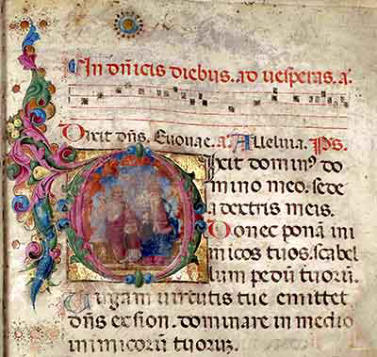 In dñicis diebus. ad uesperas. a.
Dixit dñs. Euouae. a. Alleluia. Ps.
Dixit dominꝰ do
mino meo. sede
a dextris meis.
Donec ponã ini
micos tuos. scabel
lum pedũ tuorũ.
Uirgam uirtutis tue emittet
dñs ex sion. dominare in medio
inimicorũ tuorũ.